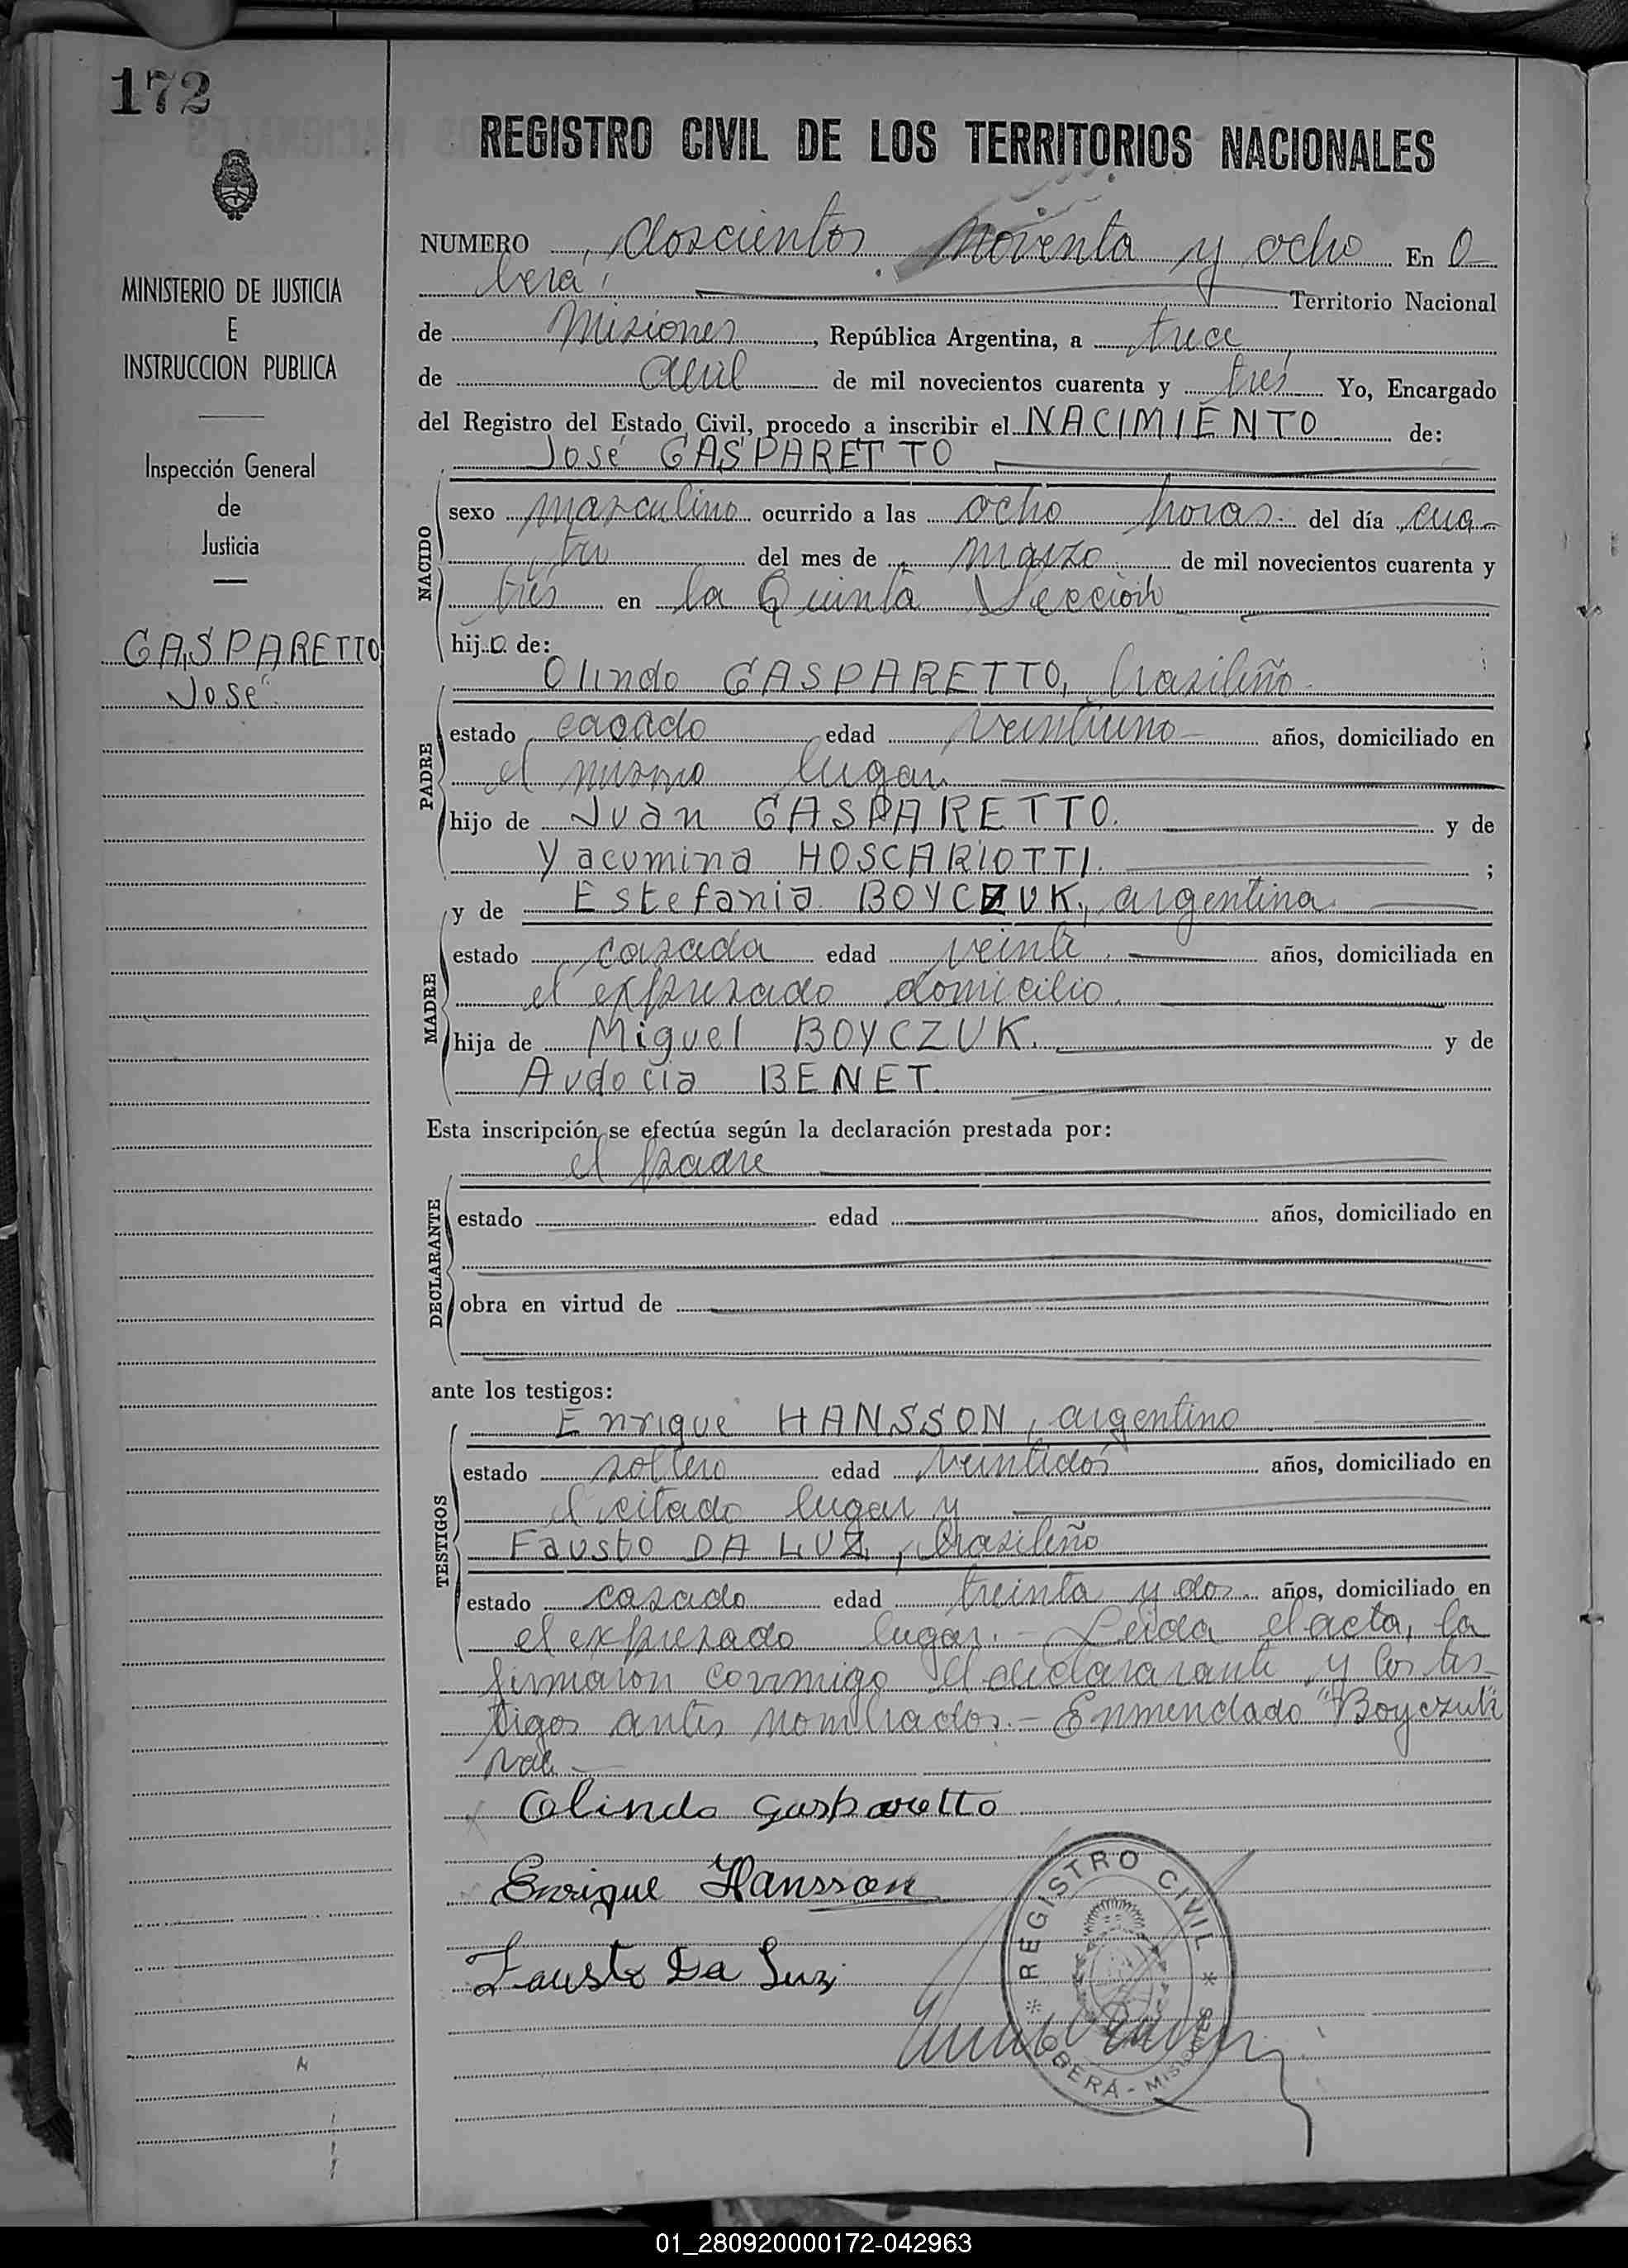 172
REGISTRO CIVIL DE LOS TERRITORIOS NACIONALES
MINISTERIO DE JUSTICIA
E
INSTRUCCION PUBLICA
Inspección General
de
Justicia
GASPARETTO
José
NUMERO doscientos noventa y ocho En O-
berá, Territorio Nacional
de Misiones, República Argentina, a trece
de abril de mil novecientos cuarenta y tres Yo, Encargado
del Registro del Estado Civil, procedo a inscribir el NACIMIENTO de:
José GASPARETTO
NACIDO
sexo masculino ocurrido a las ocho horas. del día cua-
tro del mes de marzo de mil novecientos cuarenta y
tres en la Quinta Sección
hijo de:
Olindo GASPARETTO, brasileño
PADRE
estado casado edad veintiuno años, domiciliado en
el mismo lugar.
hijo de Juan GASPARETTO. y de
Yacumina HOSCARIOTTI. ;
y de Estefania BOYCZUK, argentina
MADRE
estado casada edad veinte años, domiciliada en
el expresado domicilio.
hija de Miguel BOYCZUK. y de
Audocia BENET.
Esta inscripción se efectúa según la declaración prestada por:
el padre
DECLARANTE
estado edad años, domiciliado en
obra en virtud de
ante los testigos:
Enrique HANSSON, argentino
TESTIGOS
estado soltero edad veintidós años, domiciliado en
el citado lugar y
Fausto DA LUZ, brasileño
estado casado edad treinta y dos años, domiciliado en
el expresado lugar.- Leida el acta, la
firmaron conmigo el declararante y los tes-
tigos antes nombrados.- Enmendado "Boyczuk"
vale.-
Olindo Gasparetto
Enrique Hansson
Fausto Da Luz
REGISTRO CIVIL
OBERÁ - MISIONES
01_280920000172-042963